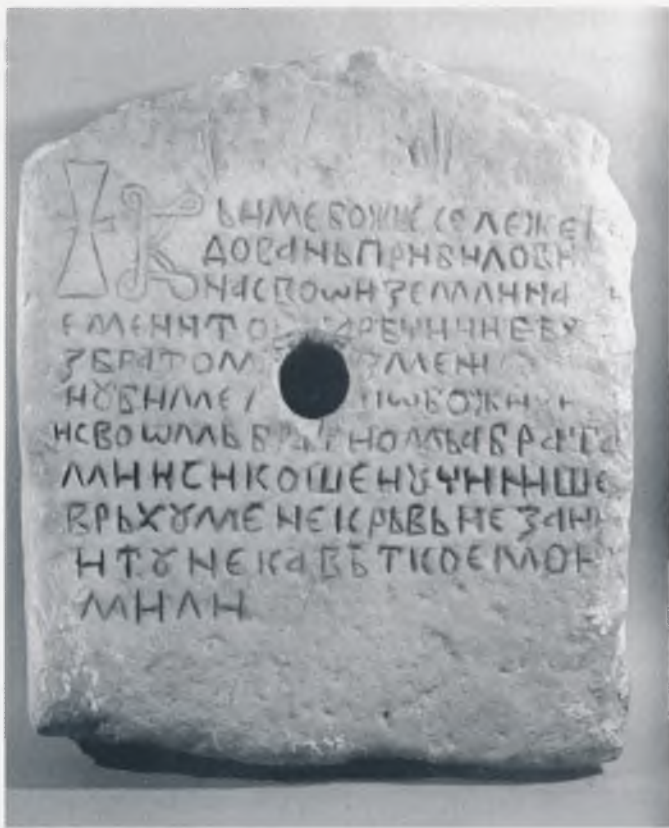 ЬИМЕ БОЖИЕ СЕ ЛЕЖЕ
ДОВАНЬ ПРИБИЛОВИ
НА СВОѠИ ЗЕМЛИ НА
ЕМЕНИТО РЕЧИЧИ НЕ БꙊ
З БРАТОМ З МЕН
ꙊБИМЕ БОЖИ
И СВОѠМЬ БРАТИОМЬ А БРАТА
МИ ИСИКОШЕ И ꙊЧИНИШЕ
ВРЬХꙊ МЕНЕ КРЬВЬ НЕЗАН
И ТꙊ НЕКА ВѢТ КОЕ МОИ
МИЛИ